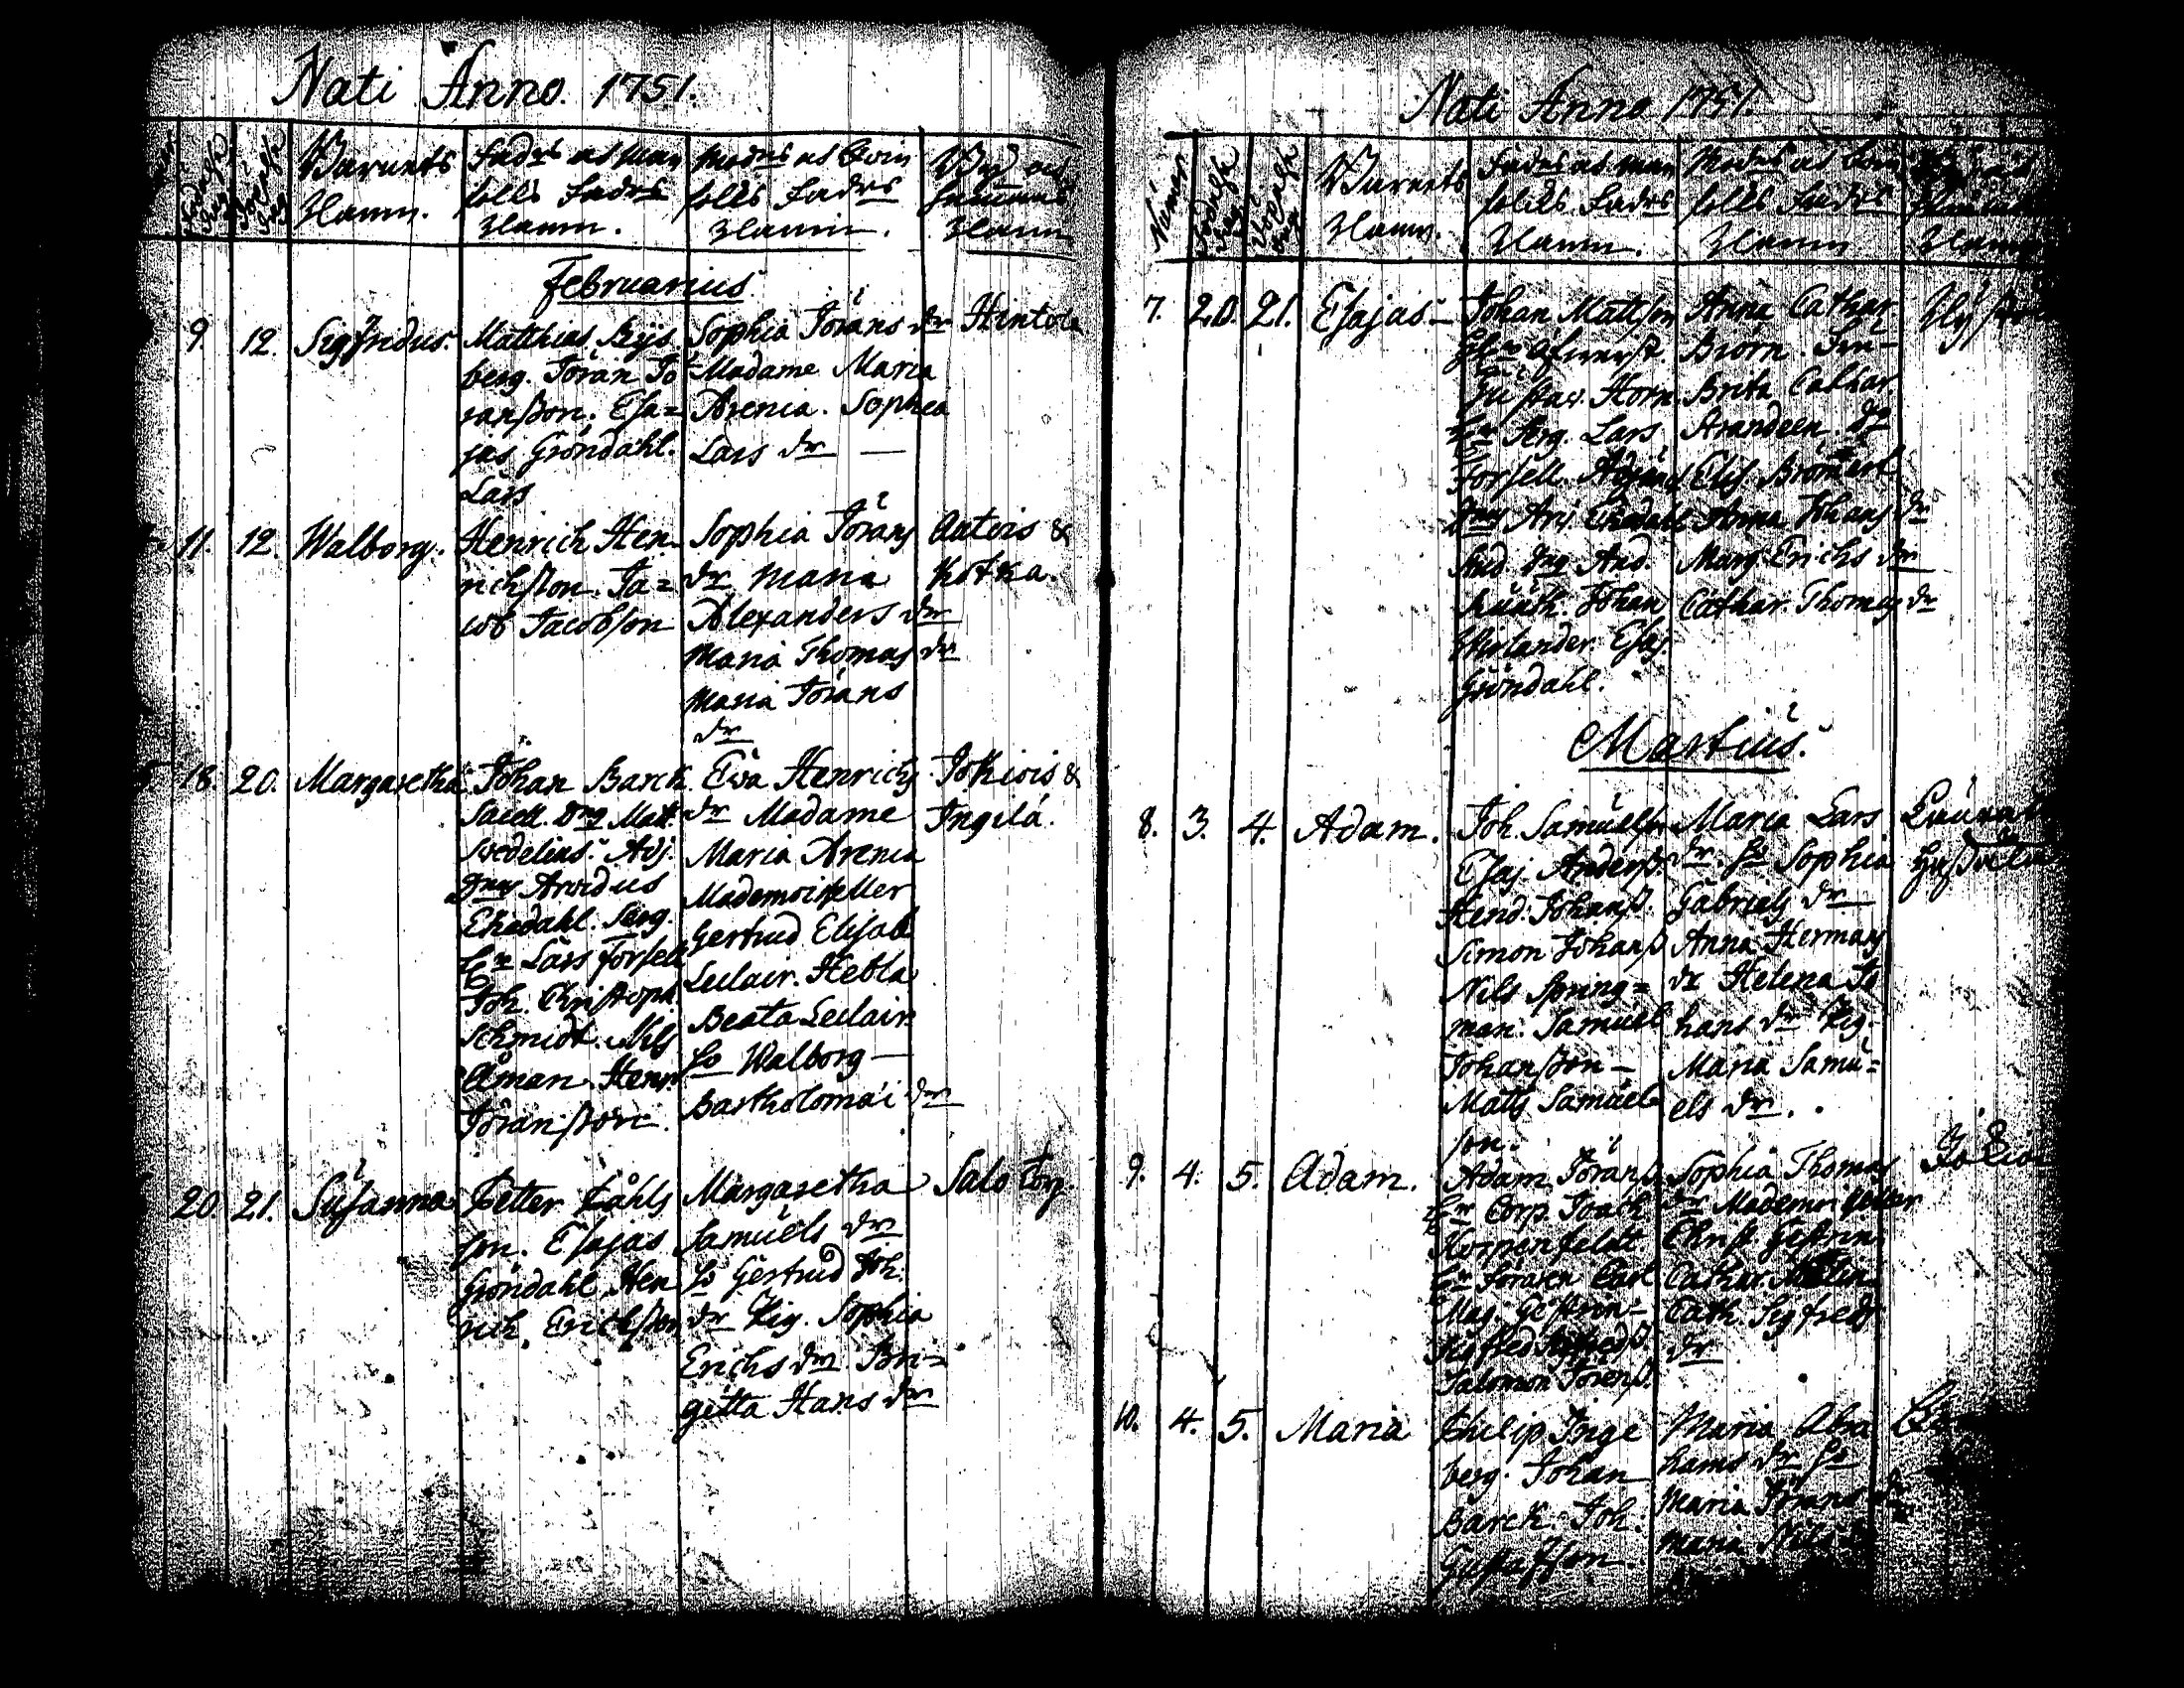 Nati Anno. 1751.
Barnets
Namn.
Fadrs as Man
folks Fadrs
Namn.
Modrs as Qvin
folks Fadrs
Namn.
Namn
Februarius
9. 12. Sigfridus.
Matthias
berg. Jöran Jö
ranszon. Esa=
jas Gröndahl.
Lars
Sophia Jörans dr
Madame Maria
Arenia. Sophia
Lars dr —
Hintois
11. 12. Walborg.
Henrich Hen-
richszon. Ja=
cob Jacobson
Sophia Jörans
dr Maria
Alexanders dr
Maria Thomas dr
Maria Jörans
dr
Autois &
Kotka.
18. 20. Margaretha
Johan Barck
Sacell. Dns Matt.
Swedelius. Adj.
Dns Arvidus
Ekedahl. Serg.
Hr Lars Forsell
Joh. Christoph
Schmidt. Nils
Åman. Henr
Jöranszon.
Ewa Henrichs
dr Madame
Maria Arenia
Mademoiseller
Gertrud Elisab
Leclair. Hebla
Beata Leclair
Walborg —
Bartholomäi dr
Jokiois &
Ingilä.
20. 21. Susanna
Petter Påhls
son. Esajas
Gröndahl Hen
rich. Erichszon
Margaretha
Samuels dr
Gertrud Joh.
dr Pig. Sophia
Erichs dr Bri=
gitta Hans dr
Salo Torp.
Nati Anno 1751.
Numer
Barnets
Namn.
Fadrs as Man
folks Fadrs
Namn.
folks Fadrs
Namn
7. 20. 21. Esajas —
Johan Mattson
Gustav. Horn.
Hr Serg. Lars
Forsell. Adjunct
Dns Arv. Ekedahl
And.
Johan
Esaj.
Gröndahl.
Anna Cathar
Biörn. Fru
Brita Cathar
Elis. Brömert
Anna Johans dr
Marg. Erichs dr
Cathar. Thomas dr
Martius.
8. 3. 4. Adam.
Joh. Samuelson
Esaj. Andersz.
Hend. Johansz.
Simon Johansz
Nils Spring=
man. Samuel
Johanszon —
Matts Samuel
son.
Maria Lars
dr Sophia
Gabriels dr
Anna Hermans
dr Helena Jo
hans dr Pig.
Maria Samu=
els dr.
9. 4. 5. Adam.
Adam Jöransz.
Hr Corp. Joach
Carl
Mag. Gestrin —
Salomon Jöransz.
Sophia Thomas
dr Mademoiseller
Christ Gestrin
Cathar.
Cath. Sigfreds
dr
10. 4. 5. Maria
Philip Inge
berg. Johan
Barck. Joh.
Gustafson.
Maria Abra
hams dr
Maria Jörans dr
Maria Nils